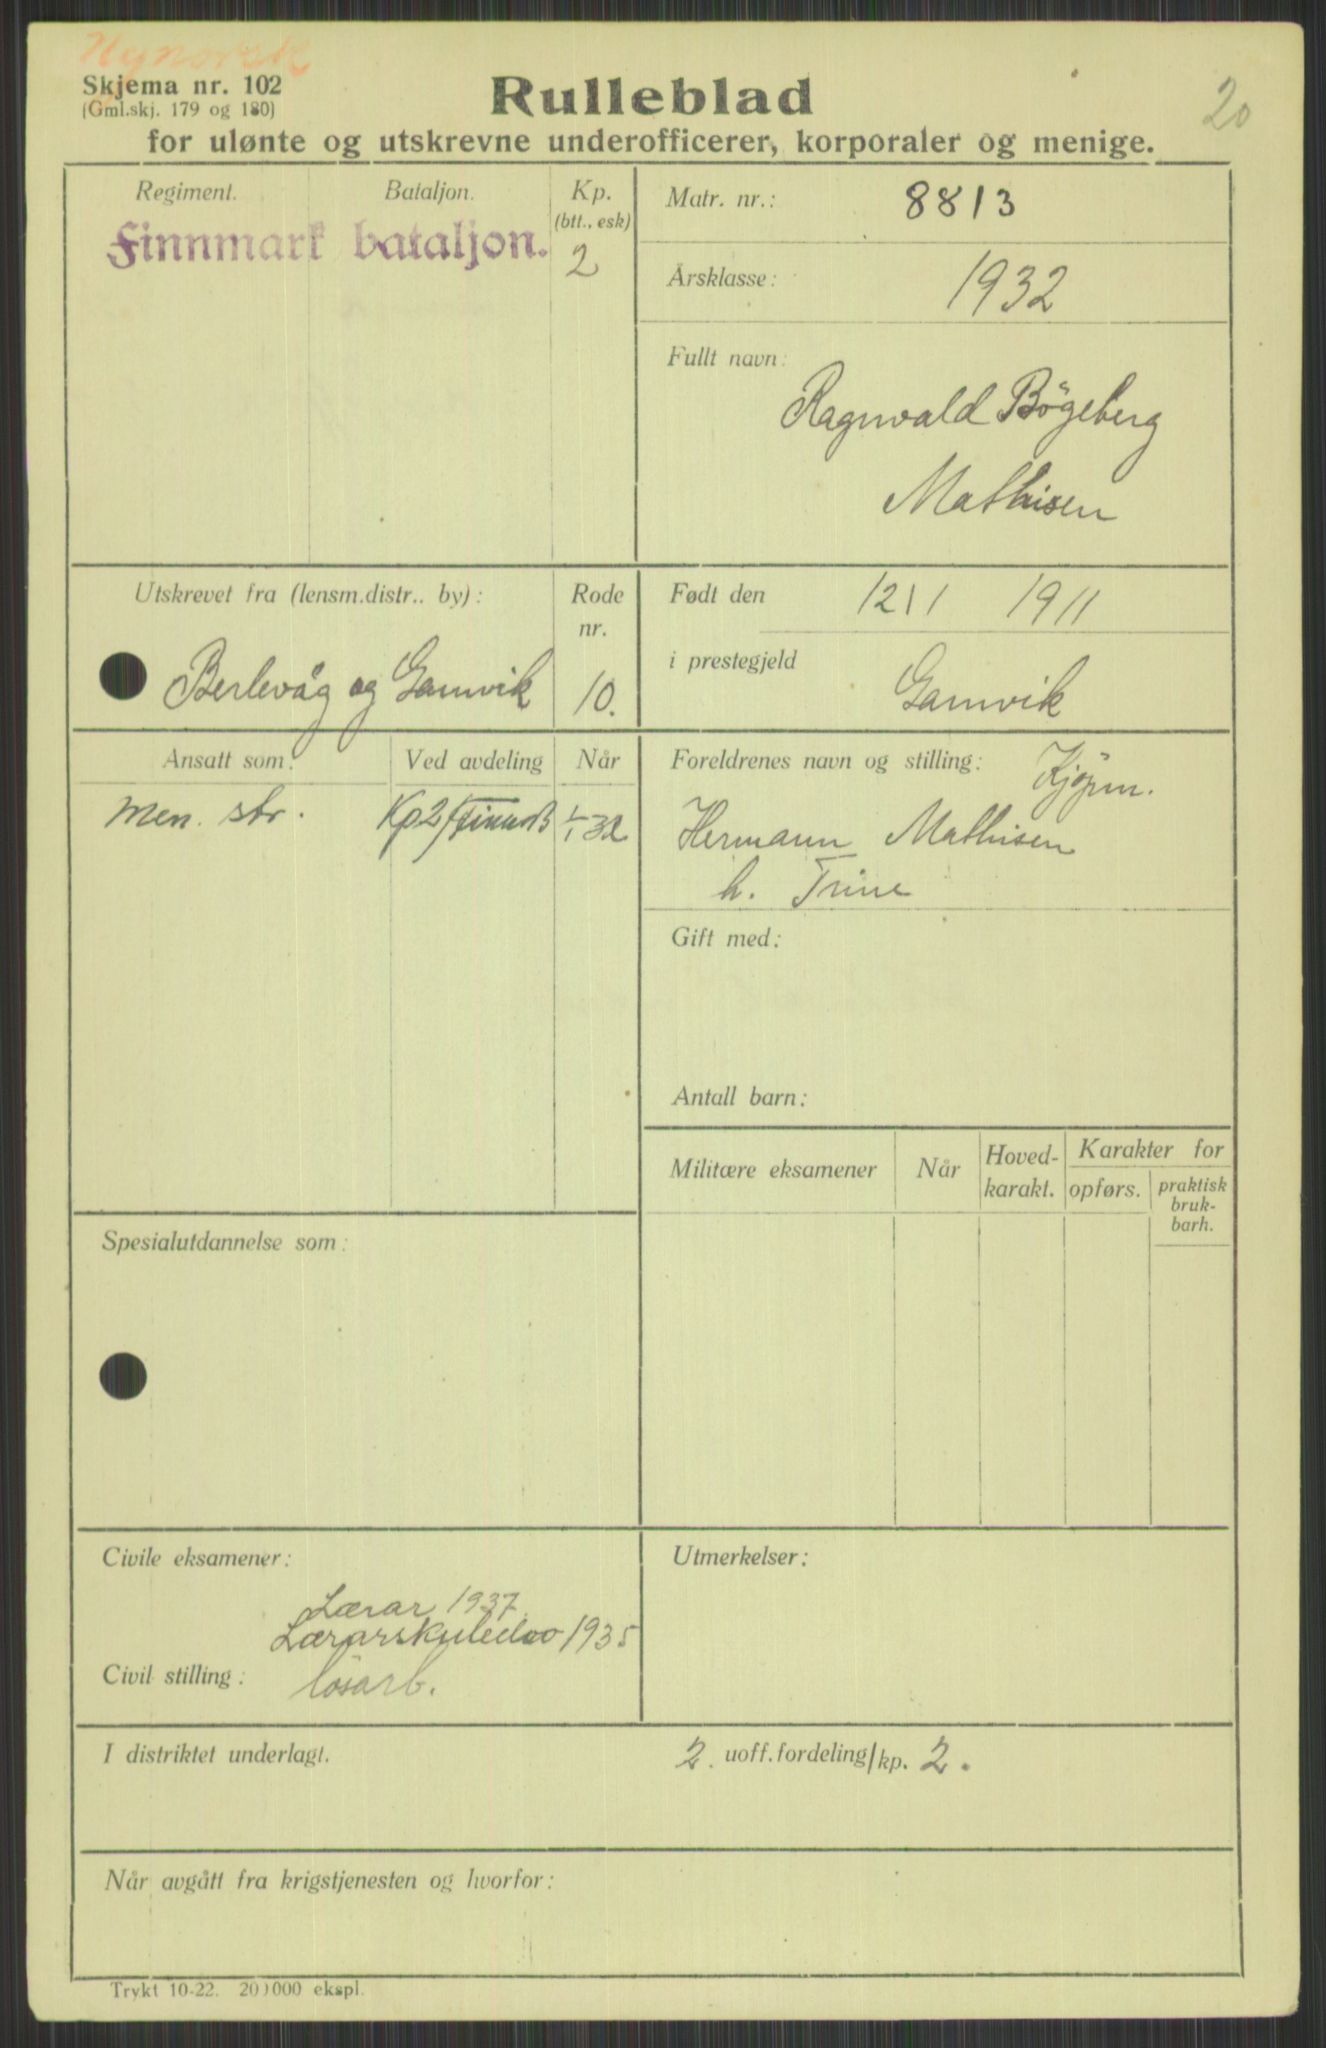 Nynorsk
Skjema nr. 102
(Gml.skj. 179 og 180)
Rulleblad
20
for ulønte og utskrevne underofficerer, korporaler og menige.
Regiment. Bataljon. Kp. (btt., esk)
Finnmark bataljon. 2
Matr. nr.: 8813
Årsklasse: 1932
Fullt navn:
Ragnvald Bögeberg
Mathisen
Utskrevet fra (lensm.distr.. by): Rode nr.
Berlevåg og Gamvik 10.
Født den 12/1 1911
i prestegjeld Gamvik
Ansatt som: Ved avdeling Når
Men. str. Kp2/FinnB 1/1 32
Foreldrenes navn og stilling: Kjöpm.
Hermann Mathisen
h. Trine
Gift med:
Antall barn:
Militære eksamener Når Hoved-karakt. Karakter for
opførs. praktisk bruk-barh.
Spesialutdannelse som:
Civile eksamener:
Lærar 1937
1935
Civil stilling: lösarb.
Utmerkelser:
I distriktet underlagt. 2. uoff.fordeling/kp. 2.
Når avgått fra krigstjenesten og hvorfor:
Trykt 10-22. 200000 ekspl.